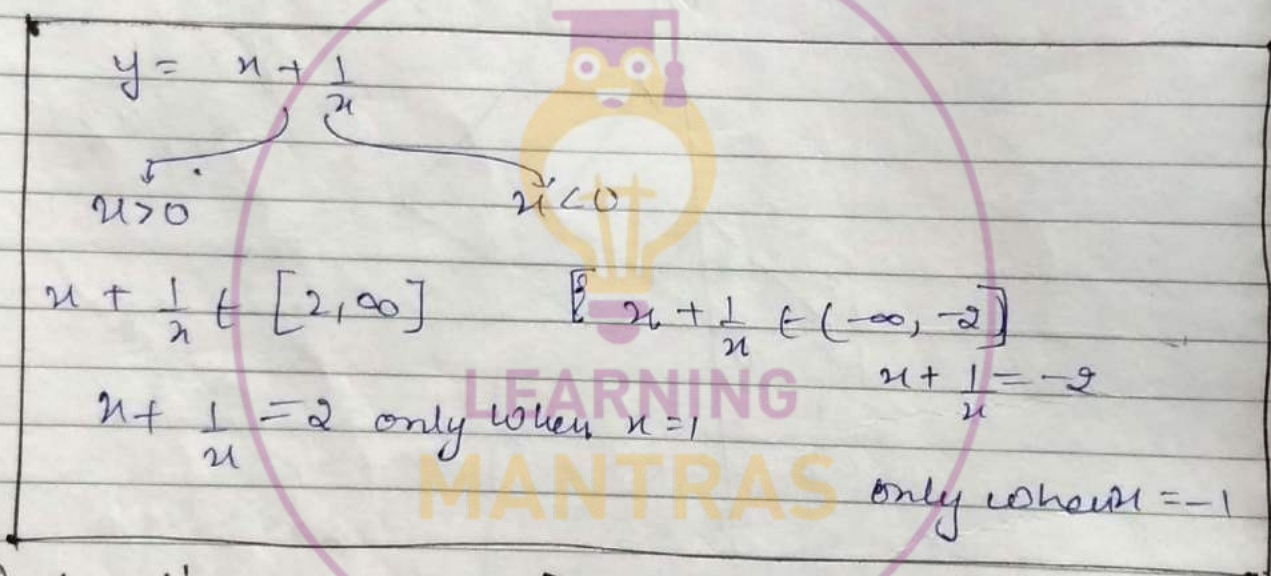 y = x + 1/x
x>0
x<0
x + 1/x ∈ [2, ∞]
x + 1/x ∈ (-∞, -2]
x + 1/x = 2 only when x=1
x + 1/x = -2
only when x = -1
LEARNING
MANTRAS